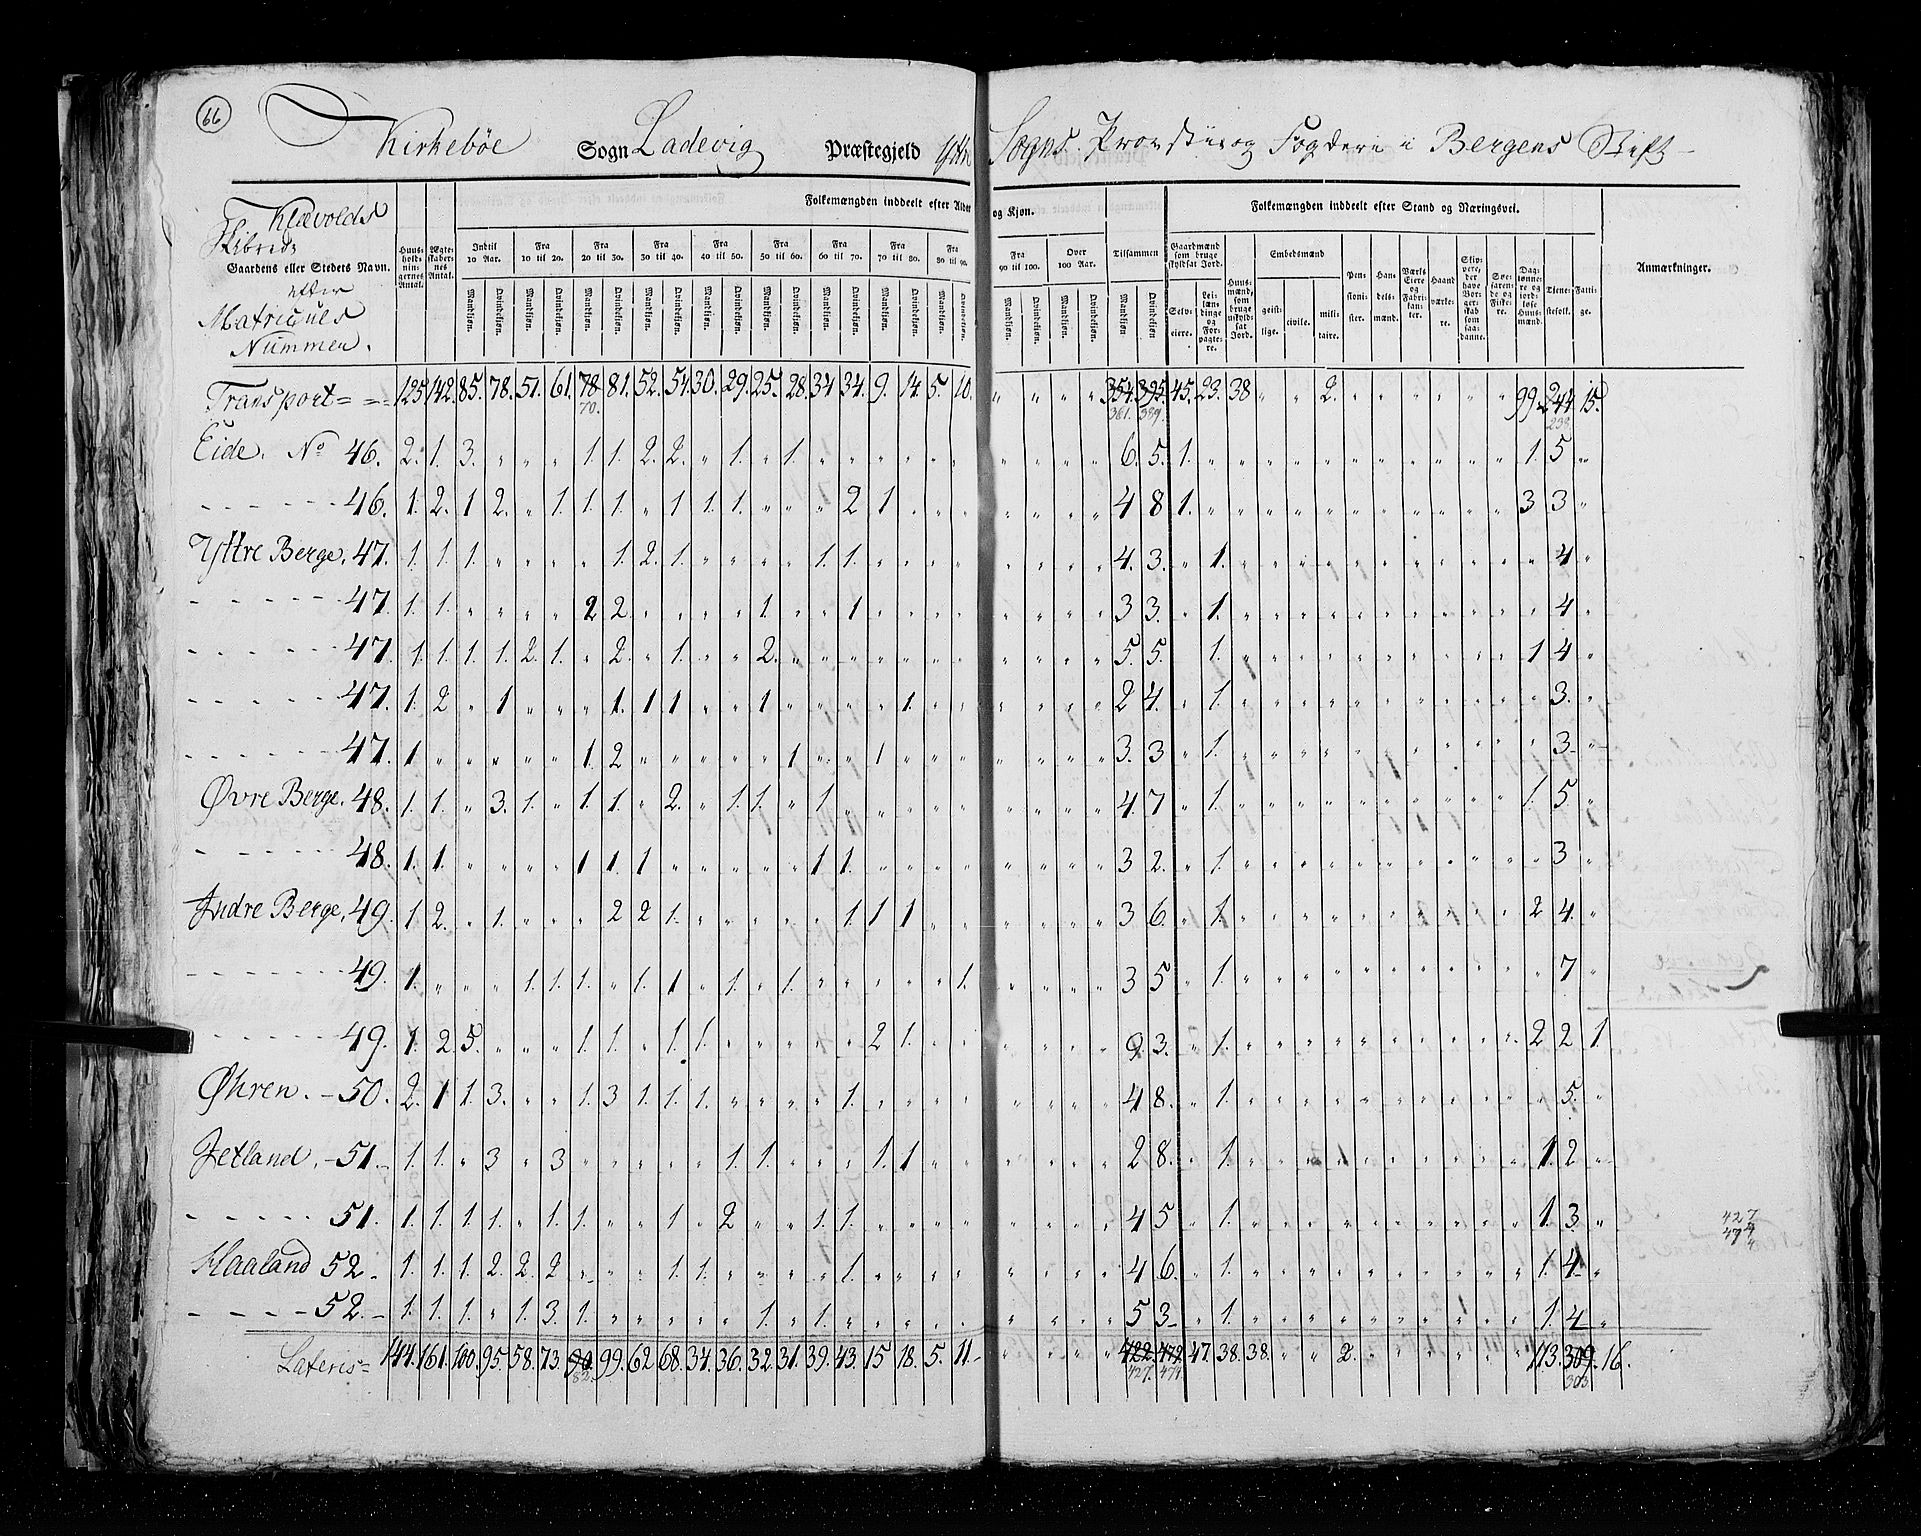 66
Kirkebøe Sogn Ladevig Præstegjeld Yttre Sogns Provstie og Fogderi i Bergens Stift
Klævolds
Skibrede
Gaardens eller Stedets Navn.
efter
Matriculs
Nummer.
Huusholdningernes Antal.
Ægteskabernes Antal.
Folkemængden inddeelt efter Alder og Kjøn.
Indtil 10 Aar. Fra 10 til 20. Fra 20 til 30. Fra 30 til 40. Fra 40 til 50. Fra 50 til 60. Fra 60 til 70. Fra 70 til 80. Fra 80 til 90. Fra 90 til 100. Over 100 Aar. Tilsammen
Mandkjøn. Qvindekjøn.
Folkemængden inddeelt efter Stand og Næringsvei.
Gaardmænd som bruge skyldsat Jord.
Selveiere. Leilændinge og Forpagtere.
Huusmænd, som bruge uskyldsat Jord.
Embedsmænd
geistlige. civile. militaire.
Pensionister. Handelsmænd. Værks Eiere og Fabrikanter. Haandværkere. Skippere, der have Borgerskab som saadanne. Søefarende og Fiskere. Dagleiere og jordløse Huusmænd. Tjenestefolk. Fattige.
Anmærkninger.
Transport = 125 142. 85. 78. 51. 61. 78 81. 52. 54. 30. 29. 25. 28. 34 34. 9. 14. 5. 10. „ „ „ „ 354. 395. 45. 23. 38 „ „ 2. „ „ „ „ „ „ 99. 244 15.
70. 361. 389. 238.
Eide. No 46. 2. 1. 3. „ „ „ 1. 1. 2. 2. „ 1. „ 1. „ „ „ „ „ „ „ „ „ „ 6. 5. 1. „ „ „ „ „ „ „ „ „ „ „ 1. 5 „
46. 1. 2. 1 2. „ 1. 1. 1. „ 1. 1. 1. „ „ „ 2 1 „ „ „ „ „ „ „ 4 8 1. „ „ „ „ „ „ „ „ „ „ „ 3 3 „
Yttre Berge. 47. 1. 1. 1. „ „ „ „ 1. 2. 1. „ „ „ „ 1. 1. „ „ „ „ „ „ „ „ 4. 3. „ 1. „ „ „ „ „ „ „ „ „ „ „ 4 „
47. 1. 1. „ „ „ „ 2 2. „ „ „ „ 1. „ „ 1. „ „ „ „ „ „ „ „ 3 3. „ 1. „ „ „ „ „ „ „ „ „ „ „ 4 „
47. 1. 1. 1. 1. 2. 1. „ 2. „ 1. „ „ 2. „ „ „ „ „ „ „ „ „ „ „ 5. 5. „ 1. „ „ „ „ „ „ „ „ „ „ 1 4 „
47. 1. 2 „ 1 „ „ „ 1. 1 1 „ „ 1 „ „ „ „ 1. „ „ „ „ „ „ 2 4. „ 1. „ „ „ „ „ „ „ „ „ „ „ 3. „
47. 1 „ „ „ „ „ 1. 2 „ „ „ „ „ 1 „ „ 1 „ „ „ „ „ „ „ 3. 3 „ 1. „ „ „ „ „ „ „ „ „ „ „ 3 „
Øvre Berge. 48. 1. 1. „ 3. 1. „ 1. 1. „ 2. „ 1. 1. „ 1. „ „ „ „ „ „ „ „ „ 4. 7 „ 1. „ „ „ „ „ „ „ „ „ „ 1. 5. „
48. 1. 1. „ „ „ „ 1 1. 1 „ „ „ „ „ 1 1. „ „ „ „ „ „ „ „ 3 2. „ 1. „ „ „ „ „ „ „ „ „ „ „ 3 „
Indre Berge. 49. 1 2. „ 1. „ „ „ 2 2 1. „ „ „ „ „ 1. 1 1 „ „ „ „ „ „ 3 6. „ 1. „ „ „ „ „ „ „ „ „ „ 2 4. „
49. 1. „ „ „ 1. 1. 1. „ 1. 1 „ 1. „ 1. „ „ „ „ „ 1. „ „ „ „ 3 5. „ 1. „ „ „ „ „ „ „ „ „ „ „ 7 „
49. 1. 2. 5. „ „ „ 1. 1. „ 1. 1. „ „ „ „ „ 2 1. „ „ „ „ „ „ 9. 3. „ 1. „ „ „ „ „ „ „ „ „ „ 2 2 1
Øhren. - 50. 2. 1 1. 3. „ „ 1. 3 1. 1. 1. „ „ „ „ 1. „ „ „ „ „ „ „ „ 4 8. „ 1. „ „ „ „ „ „ „ „ „ „ „ 5. „
Jetland. - 51. 1. 1. „ 3 „ 3 „ „ „ „ „ 1. 1. „ „ „ 1. 1 „ „ „ „ „ „ 2 8. „ 1. „ „ „ „ „ „ „ „ „ „ 1. 2 „
51. 1. 1. 1. 1. „ 1. 1. „ „ 1 „ 2 „ „ 1. 1. „ „ „ „ „ „ „ „ 4 5 „ 1. „ „ „ „ „ „ „ „ „ „ 1. 3. „
Haaland 52. 1. 1. 1. 2. 2. 2 „ „ „ 1. 1. „ „ „ „ 1. „ „ „ „ „ „ „ „ 4 6. „ 1. „ „ „ „ „ „ „ „ „ „ 1. 4. „
52. 1. 1. 1. „ 1. 3. 1. „ „ „ „ „ 1. „ 1. „ „ „ „ „ „ „ „ „ 5 3 „ 1. „ „ „ „ „ „ „ „ „ „ 1 4 „
Lateris = 144. 161. 100. 95. 58. 73. 90. 99. 62. 68. 34. 36. 32. 31. 39. 43. 15 18. 5. 11. „ „ „ „ 422. 472. 47. 38. 38. „ „ 2. „ „ „ „ „ „ 113. 309. 16.
82. 427. 474. 303.
427
474